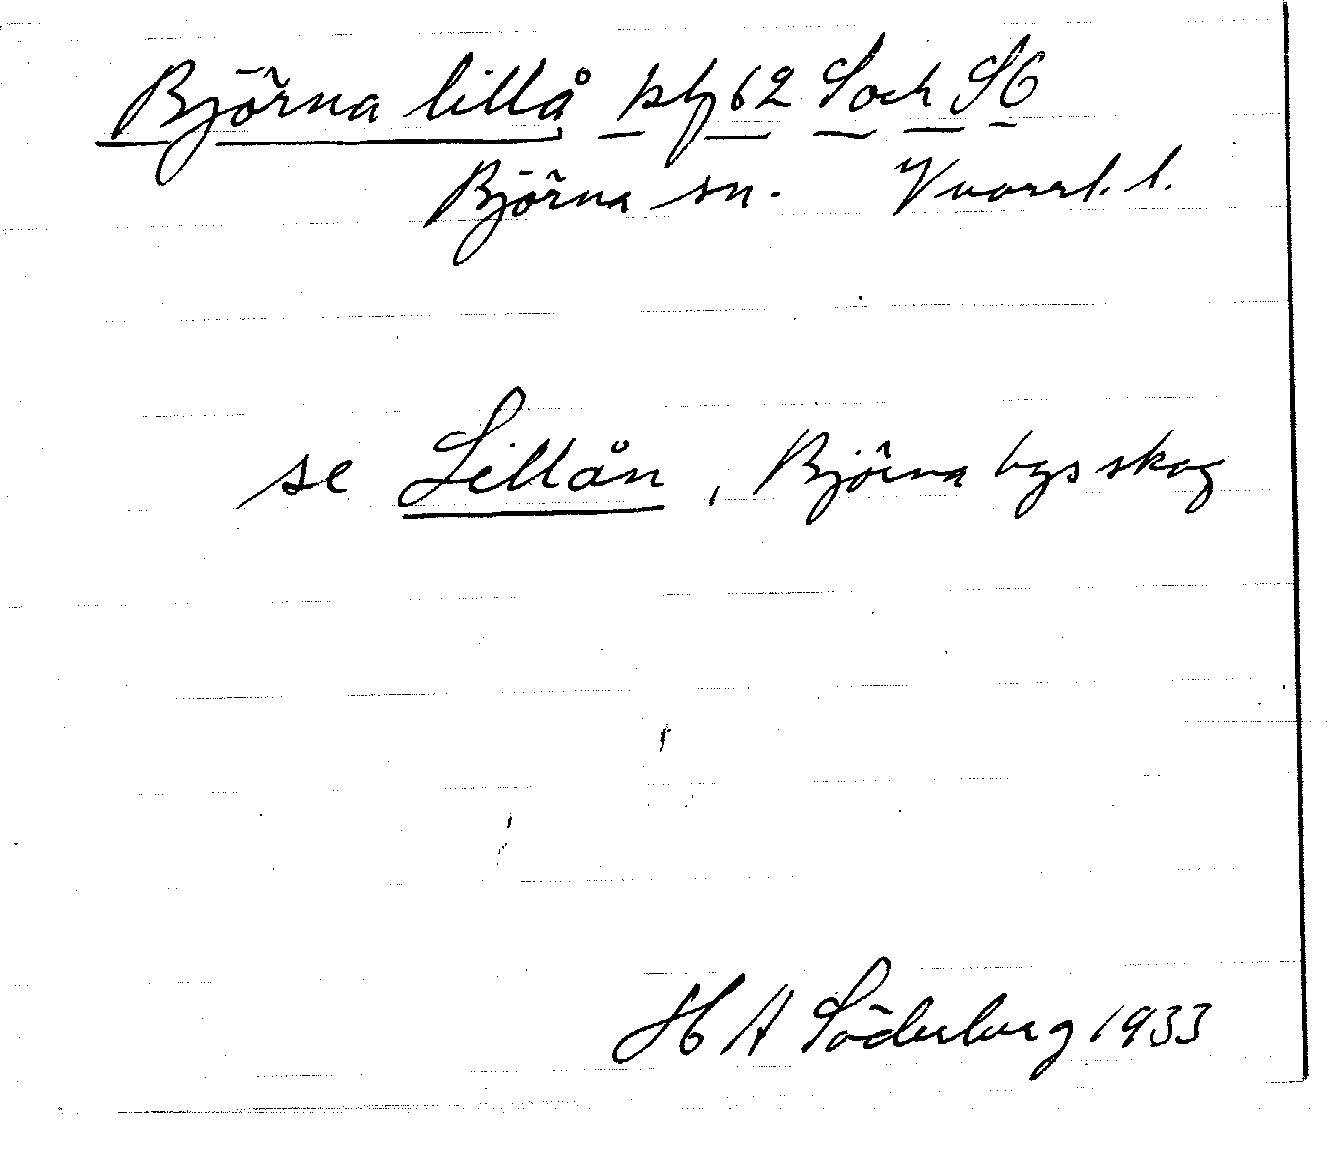 Björna lillå pl 62 S och SÖ
Björna sn. Vuorrl. l.
se Lillån, Björna bys skog
H A Söderberg 1933